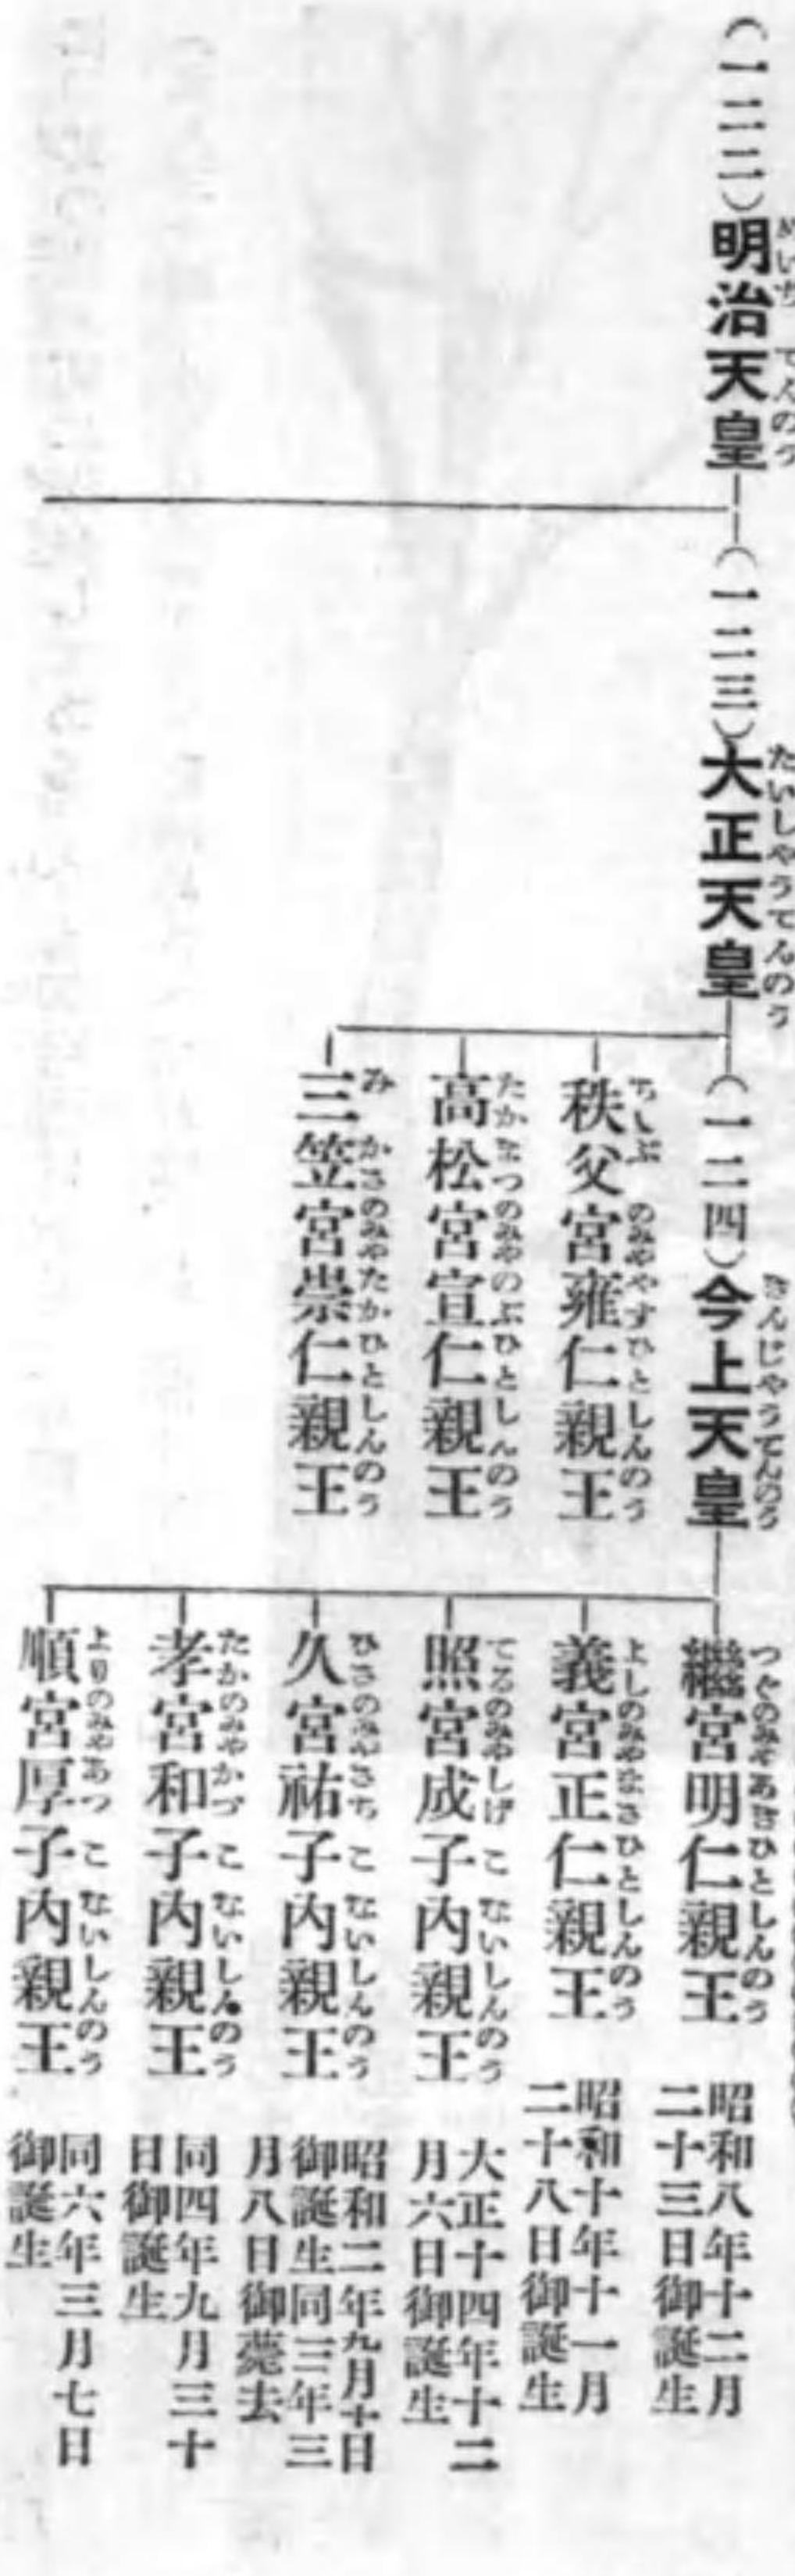 （一二二）明治天皇
（一二三）大正天皇
たいしやうてんのう
（一二四）今上天皇
きんじやうてんのう
秩父宮雍仁親王
ちちぶのみややすひとしんのう
高松宮宣仁親王
たかまつのみやのぶひとしんのう
三笠宮崇仁親王
みかさのみやたかひとしんのう
繼宮明仁親王
つぐのみやあきひとしんのう
昭和八年十二月
二十三日御誕生
義宮正仁親王
よしのみやまさひとしんのう
昭和十年十一月
二十八日御誕生
照宮成子内親王
てるのみやしげこないしんのう
大正十四年十二
月六日御誕生
久宮祐子内親王
ひさのみやさちこないしんのう
昭和二年九月十日
御誕生同三年三
月八日御薨去
孝宮和子内親王
たかのみやかづこないしんのう
同四年九月三十
日御誕生
順宮厚子内親王
よりのみやあつこないしんのう
同六年三月七日
御誕生